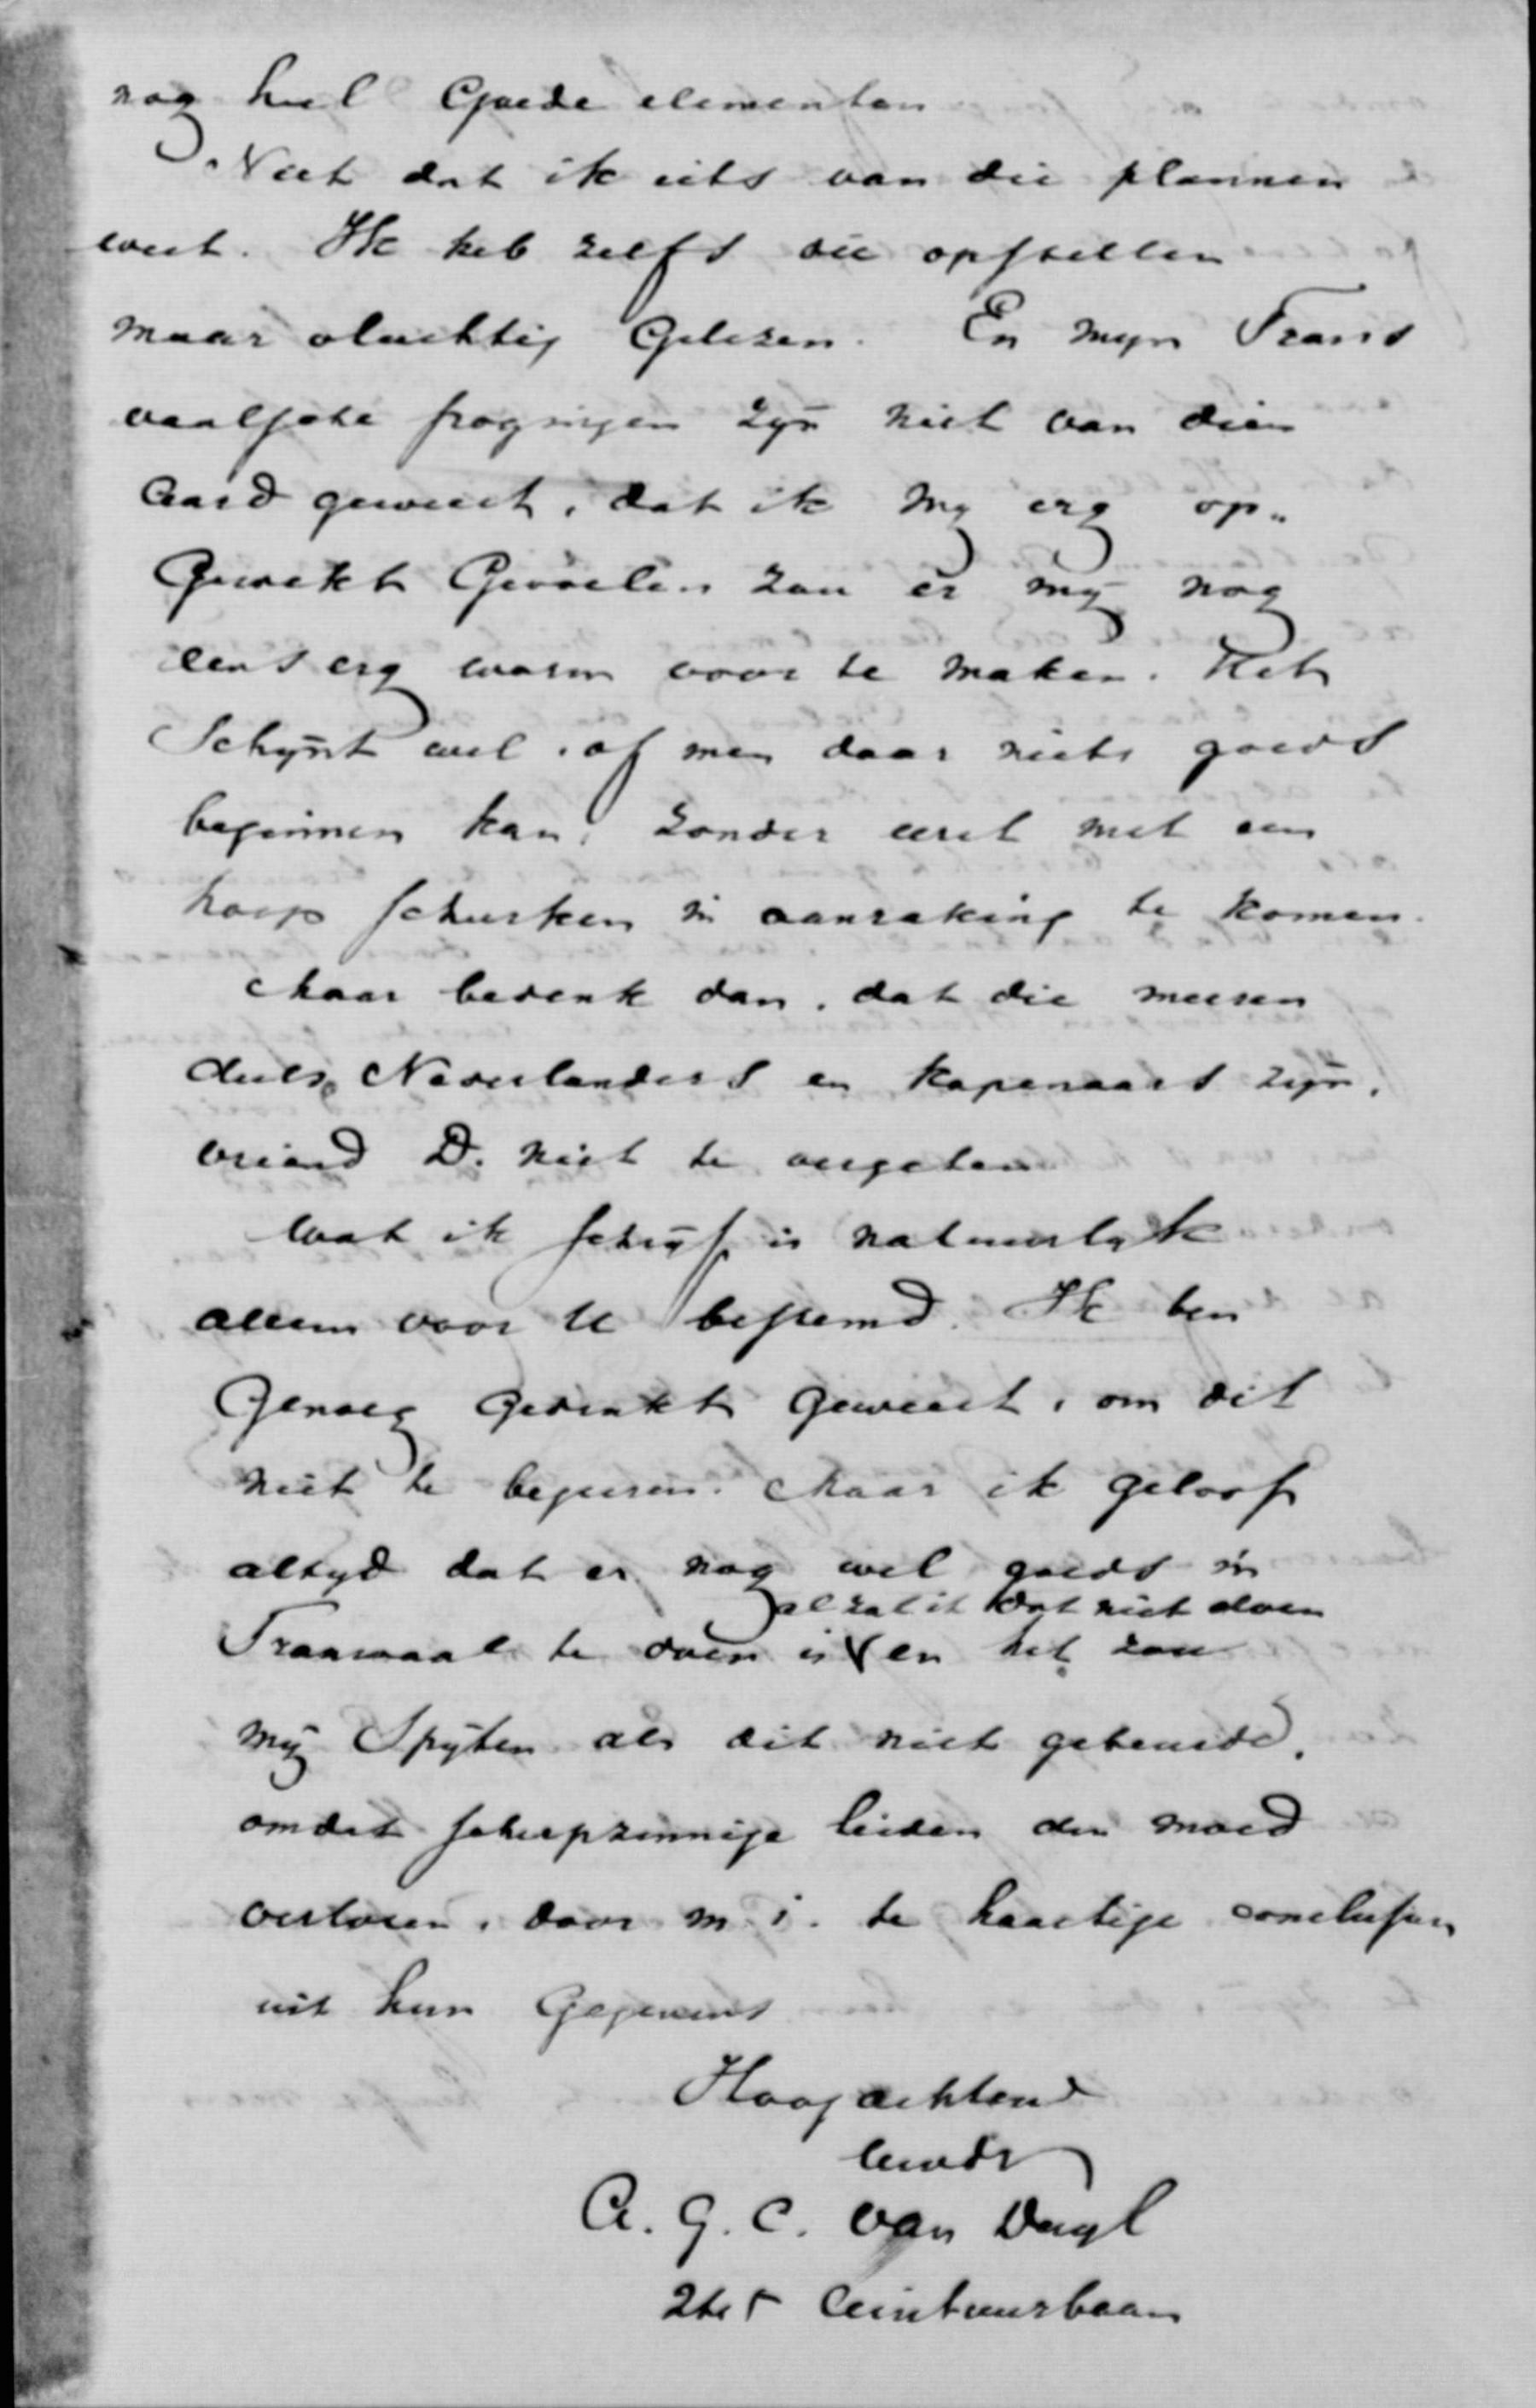 nog heel Goede elementen
Niet dat ik iets van die plannen
weet. Ik heb zelfs die opstellen
maar vluchtig Gelezen. En myn Trans
vaalsche pogingen zyn niet van dien
aard geweest, dat ik my erg op„
Gewekt Gevoelen zou er my nog
eens erg warm voor te maken. Het
Schynt wel, of men daar niets goeds
beginnen kan, zonder eerst met een
hoop schurken in aanraking te komen.
Maar bedenk dan, dat die meeren
deels Nederlanders en Kapenaars zyn,
vriend D. niet te vergeten
Wat ik schryf is natuurlyk
alleen voor U bestemd. Ik ben
Genoeg Gedrukt Geweest, om dit
niet te begeeren. Maar ik geloof
altyd dat er nog wel goeds in
al zal ik dat niet doen
Transvaal te doen is en het zou
my Spyten als dit niet gebeurde,
omdat scherpzinnige lieden den moed
verloren, door m. i. te haastige conclusien
uit hun Gegevens
Hoogachtend
A. G. C. van Duyl
Ceintuurbaan